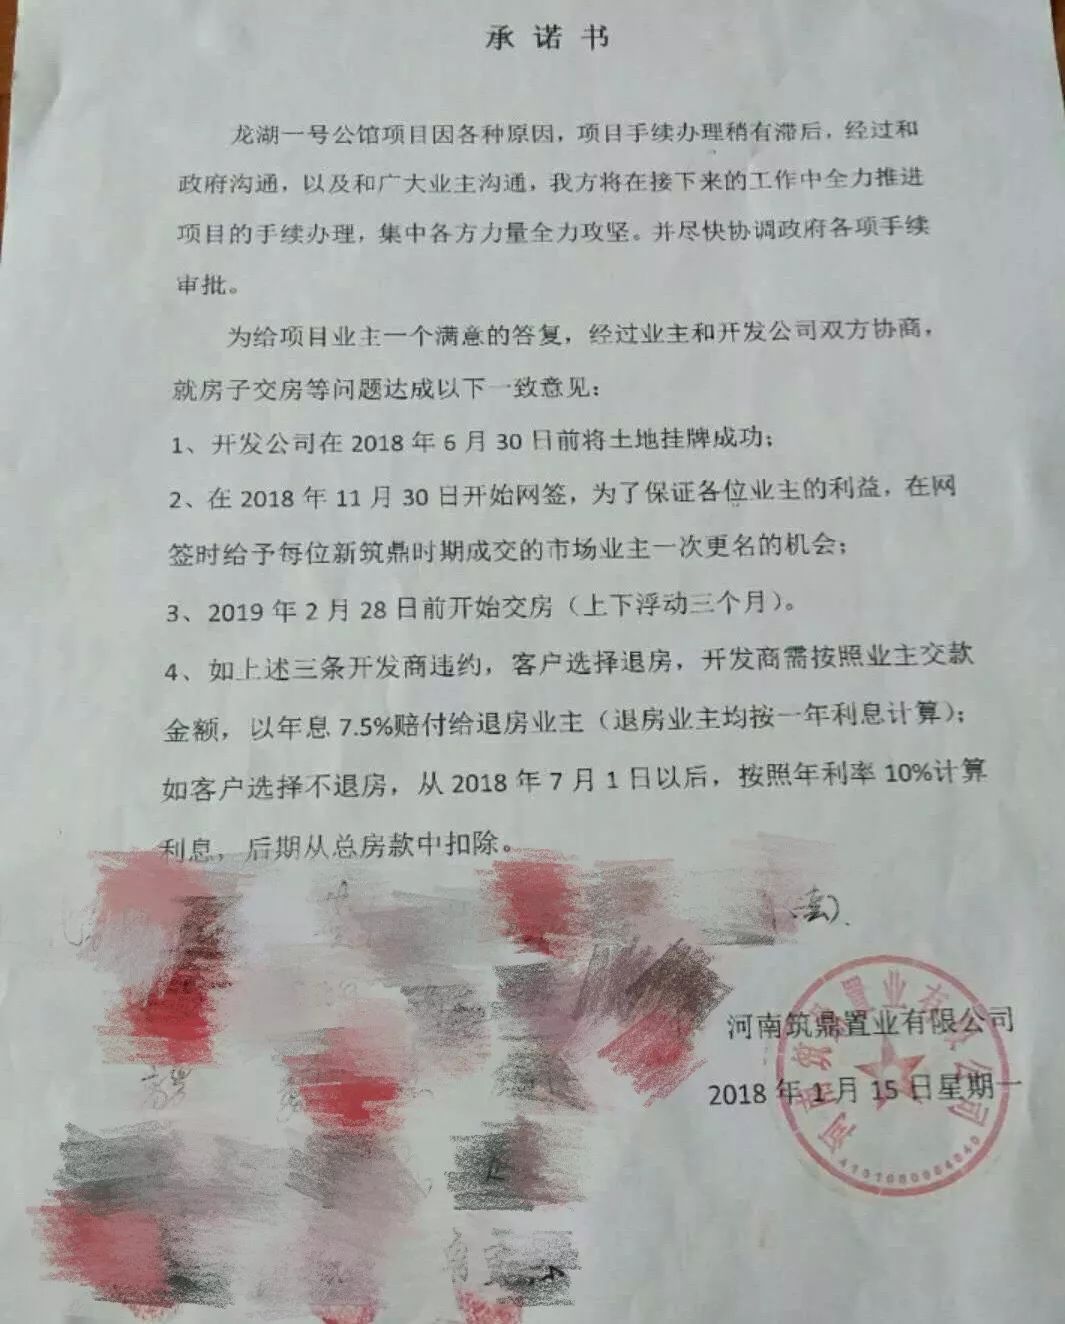 承诺书
龙湖一号公馆项目因各种原因，项目手续办理稍有滞后，经过和
政府沟通，以及和广大业主沟通，我方将在接下来的工作中全力推进
项目的手续办理，集中各方力量全力攻坚。并尽快协调政府各项手续
审批。
为给项目业主一个满意的答复，经过业主和开发公司双方协商，
就房子交房等问题达成以下一致意见：
1、开发公司在 2018 年 6 月 30 日前将土地挂牌成功；
2、在 2018 年 11 月 30 日开始网签，为了保证各位业主的利益，在网
签时给予每位新筑鼎时期成交的市场业主一次更名的机会；
3、2019 年 2 月 28 日前开始交房（上下浮动三个月）。
4、如上述三条开发商违约，客户选择退房，开发商需按照业主交款
金额，以年息 7.5%赔付给退房业主（退房业主均按一年利息计算）；
如客户选择不退房，从 2018 年 7 月 1 日以后，按照年利率 10%计算
利息，后期从总房款中扣除。
河南筑鼎置业有限公司
2018 年 1 月 15 日星期一
河南筑鼎置业有限公司